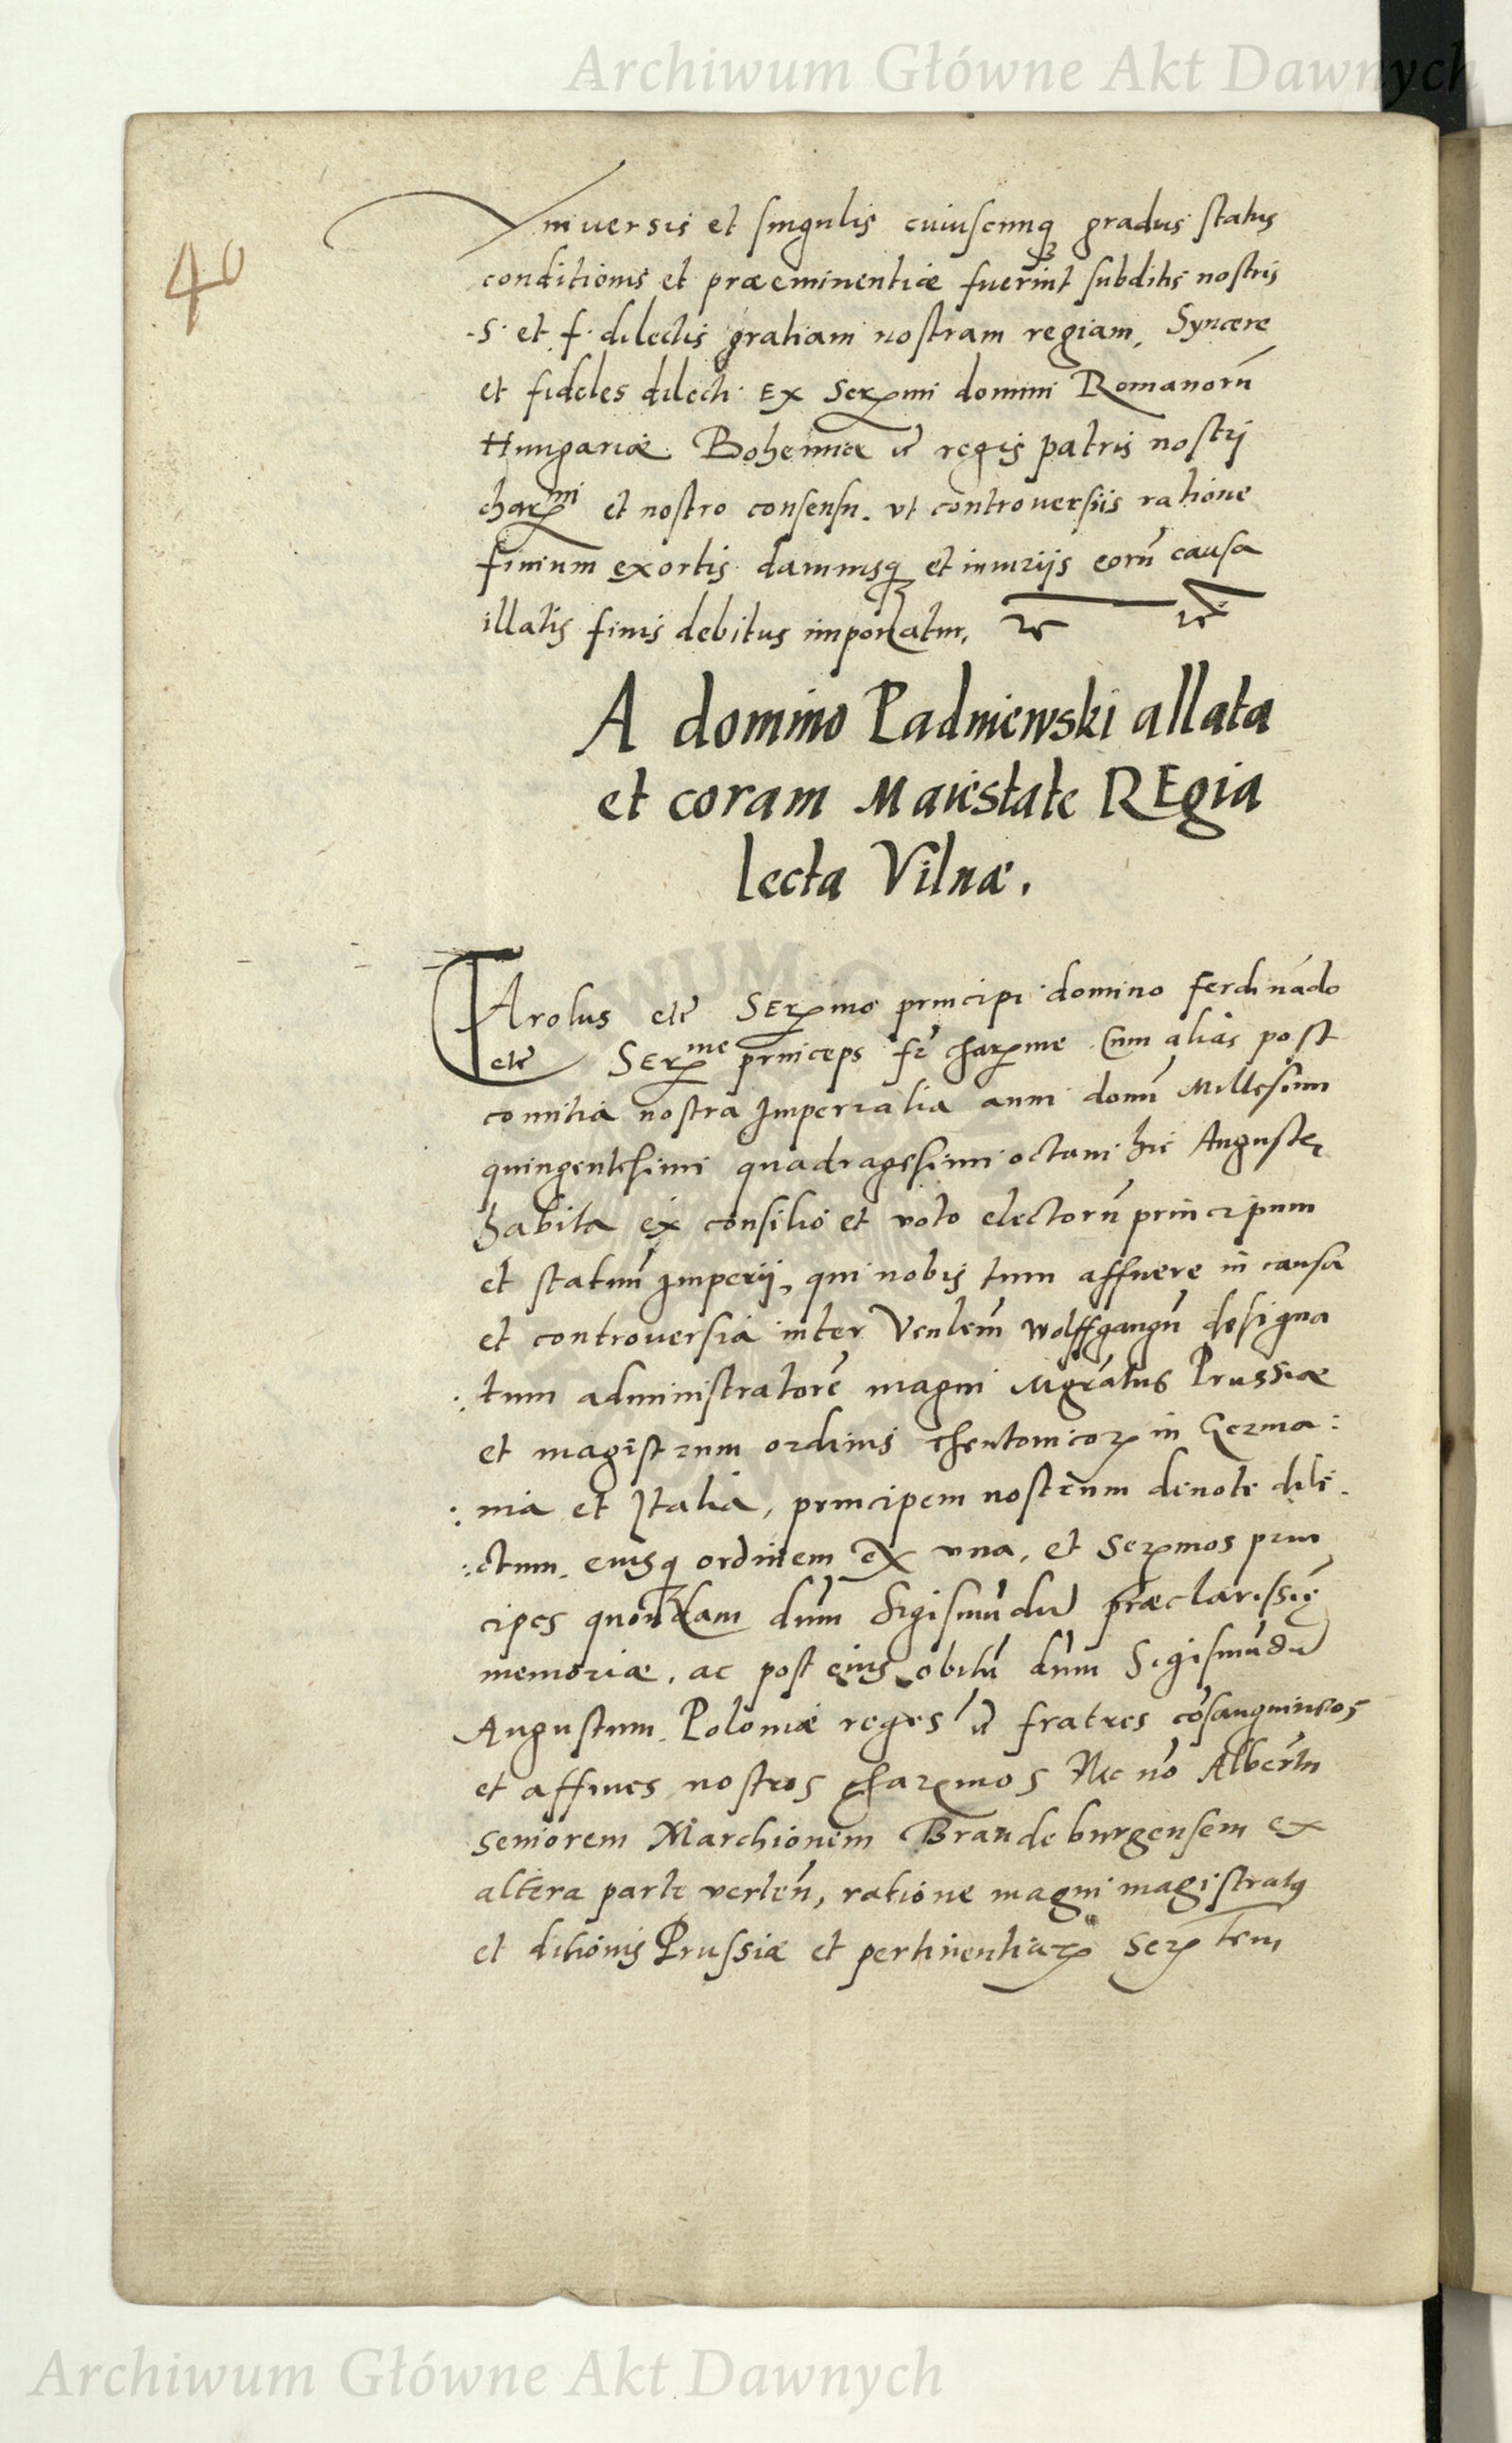 Archiwum Główne Akt Dawnych
40
Vniuersis et singulis cuiuscunq gradus status
conditionis et præeminentiæ fuerint subditis nostris
S. et f. dilectis gratiam nostram regiam, Syncere
et fideles dilecti. Ex Sermi domini Romanorū
Hungariæ Bohemiæ regis patris nostrj
charmi et nostro consensu. vt controuersiis ratione
finium exortis damnisq et iniurijs eorū causa
illatis finis debitus imponatur,
A domino Padniewski allata
et coram Maiestate REgia
lecta Vilnæ.
CArolus etc̃ SErmo principi domino Ferdinãdo
etc̃ SErme princeps fr̃ charme Cum alias post
comitia nostra Imperialia anni domī Millesimi
quingentesimi quadragesimi octaui hic Augustę
habita ex consilio et voto electorū principum
et statuū Imperij, qui nobis tum affuere in causa
et controuersia inter Venlem̃ Wolffgangū designa
tum administratorē magni Mgrãtus Prussiæ
et magistrum ordinis theutonicor in Germa:
nia et Italia, principem nostrum deuote dile
ctum, eiusq ordinem ex vna, et Sermos prin
cipes quondam dūm Sigismūdū præclarissię
memoriæ, ac post eius obitū dūm Sigismūdū
Augustum Poloniæ reges fratres cõsanguineos
et affines nostros charmos Nec nō Albertū
seniorem Marchionem Brandeburgensem ex
altera parte verteñ, ratione magni magistratq
et ditionis Prussiæ et pertinentiar Ser tem
Archiwum Główne Akt Dawnych